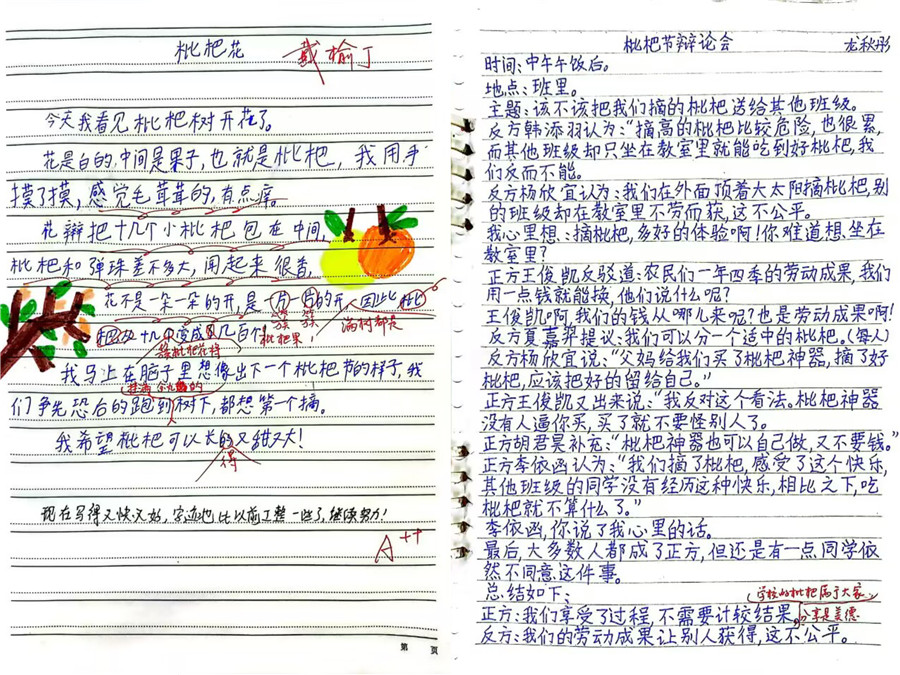 枇杷花
戴榆丁
今天我看见枇杷树开花了。
花是白的,中间是果子,也就是枇杷,我用手
摸了摸,感觉毛茸茸的,有点痒。
花瓣把十几个小枇杷包在中间,
枇杷和弹珠差不多大,闻起来很香。
花不是一朵一朵的开,是一片一片的开,因此枇
簇 簇
枇杷果,
满树都是
我马上在脑子里想像出下一个枇杷节的样子,我
们争先恐后的跑到树下,都想第一个摘。
我希望枇杷可以长的又甜又大!
得
现在写得又快又好,字迹也比以前工整一些了,继续努力!
A++
第 页
枇杷节辩论会 龙秋彤
时间:中午午饭后。
地点:班里。
主题:该不该把我们摘的枇杷送给其他班级。
反方韩添羽认为:“摘高的枇杷比较危险,也很累,
而其他班级却只坐在教室里就能吃到好枇杷,我
们反而不能。
反方杨欣宜认为:我们在外面顶着大太阳摘枇杷,别
的班级却在教室里不劳而获,这不公平。
我心里想:摘枇杷,多好的体验啊!你难道想坐在
教室里?
正方王俊凯反驳道:农民们一年四季的劳动成果,我们
用一点钱就能换,他们说什么呢?
王俊凯啊,我们的钱从哪儿来呢?也是劳动成果啊!
反方夏嘉羿提议:我们可以分一个适中的枇杷。(每人)
反方杨欣宜说:“父妈给我们买了枇杷神器,摘了好
枇杷,应该把好的留给自己。”
正方王俊凯又出来说:“我反对这个看法。枇杷神器
没有人逼你买,买了就不要怪别人了。
正方胡君昊补充:“枇杷神器也可以自己做,又不要钱。”
正方李依函认为:“我们摘了枇杷,感受了这个快乐,
其他班级的同学没有经历这种快乐,相比之下,吃
枇杷就不算什么了。”
李依函,你说了我心里的话。
最后,大多数人都成了正方,但还是有一点同学依
然不同意这件事。
总结如下:
(学校的枇杷属于大家,
正方:我们享受了过程,不需要计较结果。分享是美德
反方:我们的劳动成果让别人获得,这不公平。